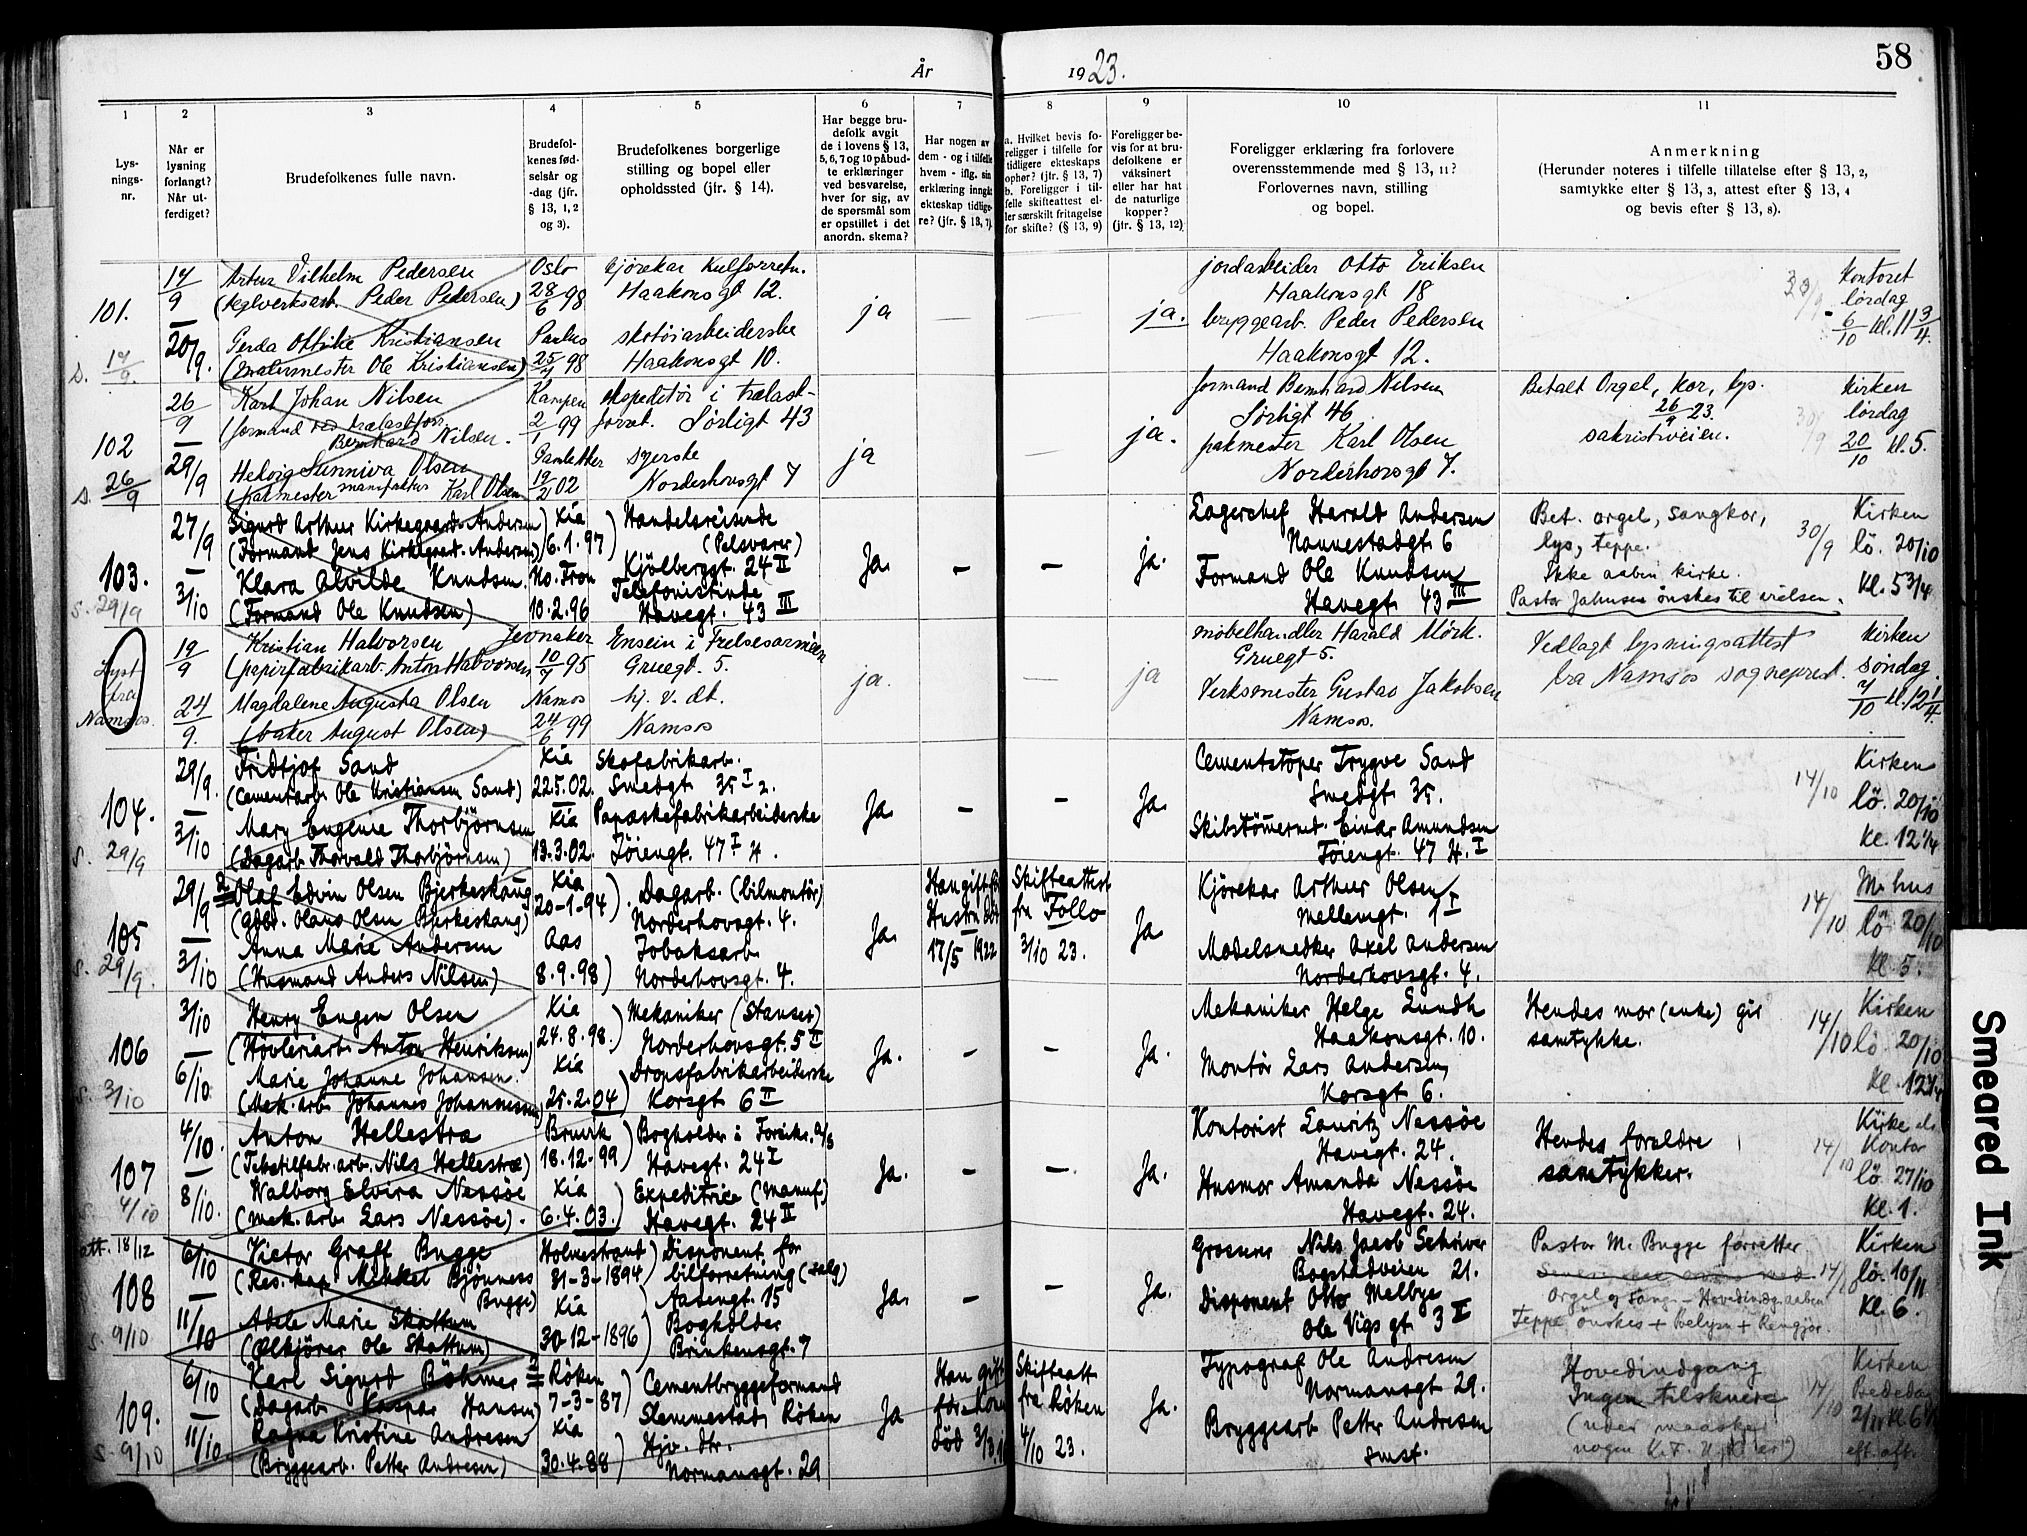 58
År 1923.
1
Lys-
nings-
nr.
2
Når er
lysning
forlangt?
Når ut-
ferdiget?
3
Brudefolkenes fulle navn.
4
Brudefol-
kenes fød-
selsår og
-dag (jfr.
§ 13, 1, 2
og 3).
5
Brudefolkenes borgerlige
stilling og bopel eller
opholdssted (jfr. § 14).
6
Har begge bru-
defolk avgit
de i lovens § 13,
5, 6, 7 og 10 påbud-
te erklæringer
ved besvarelse,
hver for sig, av
de spørsmål som
er opstillet i det
anordn. skema?
7
Har nogen av
dem - og i tilfelle
hvem - iflg. sin
erklæring inngått
ekteskap tidlige-
re? (jfr. § 13, 7)
8
a. Hvilket bevis fo-
religger i tilfelle for
tidligere ekteskaps
ophør? (jfr. § 13, 7)
b. Foreligger i til-
felle skifteattest el-
ler særskilt fritagelse
for skifte? (§ 13, 9)
9
Foreligger be-
vis for at bru-
defolkene er
vaksinert
eller har hat
de naturlige
kopper?
(jfr. § 13, 12)
10
Foreligger erklæring fra forlovere
overensstemmende med § 13, 11?
Forlovernes navn, stilling
og bopel.
11
Anmerkning
(Herunder noteres i tilfelle tillatelse efter § 13, 2,
samtykke efter § 13, 3, attest efter § 13, 4
og bevis efter § 13, 8).
101.
s. 17/9.
17/9
—
20/9.
Artur Vilhelm Pedersen
(teglverksarb. Peder Pedersen)
Gerda Ottilie Kristiansen
(malermester Ole Kristiansen)
Oslo
28/6 98
25/4 98
kjørekar Kulforretn.
Haakonsgt 12.
skotøiarbeiderske
Haakonsgt 10.
ja
—
—
ja.
jordarbeider Otto Eriksen
Haakonsgt 18
bryggearb. Peder Pedersen
Haakonsgt 12.
30/9
Kontoret
lørdag
6/10 kl. 11 3/4.
102
s. 26/9
26/9
—
29/9
Karl Johan Nilsen
(formand ved trælastforr.
Bernhard Nilsen.
Hedvig Sunniva Olsen
(pakmester manufaktur Karl Olsen
Kampen
2/1 99
Gamle Aker
02
ekspeditør i trælast-
forret. Sørligt 43
syerske
Norderhovsgt 7
ja
—
ja.
formand Bernhard Nilsen
Sørligt 46
pakmester Karl Olsen
Norderhovsgt 7.
Betalt Orgel, kor, lys.
26/9 23.
sakristiveien.
30/9
Kirken
lørdag
20/10 kl. 5.
103.
s. 29/9
27/9
—
3/10
Sigurd Arthur Kirkegaard-Andersen
(Formand Jens Kirkegaard-Andersen)
Klara Alvilde Knudsen.
(Formand Ole Knudsen)
Kia
6.1.97
No. Fron
10.2.96
Handelsreisende
(Pelsvarer)
Kjølberggt. 24 II
Telefonistinde
Havegt. 43 III
Ja.
—
—
ja.
Lagerchef Harald Andersen
Nannestadgt. 6
Formand Ole Knudsen
Havegt. 43 III
Bet. orgel, sangkor,
lys, teppe.
Ikke aaben kirke.
Pastor Johnsen ønskes til vielsen.
30/9
Kirken
lö. 20/10
Kl. 5 3/4
Lyst
fra
Namsos.
19/9
24/9.
Kristian Halvorsen
(papirfabrikarb. Anton Halvorsen
Magdalene Augusta Olsen
(baker August Olsen)
Jevnaker
95
Namsos
24/6 99
Ensein i Frelsesarmeen
Gruegt. 5.
hj. v. dt.
Namsos
ja.
—
ja
møbelhandler Harald Mørk.
Gruegt 5.
Verksmester Gustav Jakobsen
Namsos.
Vedlagt lysningsattest
fra Namsos sogneprest.
Kirken
søndag
7/10 kl. 12 1/4.
104.
s. 29/9
29/9.
—
3/10
Fridtjof Sand
(Cementarb. Ole Kristiansen Sand)
Mary Engenie Thorbjørnsen
(Dagarb. Thorvald Thorbjørnsen)
Kia
22.5.02.
Kia
13.3.02.
Skofabrikarb.
Smedgt. 35 I 2.
Papæskefabrikarbeiderske
Töiengt. 47 I 4.
Ja.
—
—
Ja.
Cementstøper Trygve Sand
Smedgt. 35.
Einar Amundsen
Töiengt. 47 4. I
14/10
Kirken
lö. 20/10
Kl. 12 1/4
105
s. 29/9.
29/9
—
3/10
Olaf Edvin Olsen Bjerkeskaug
(Gbr. Olaus Olsen Bjerkeskaug)
Anna Marie Andersen
(Husmand Anders Nilsen)
Kia
20-1-94
Aas
8.9.98
Dagarb. (bilmontör)
Norderhovsgt. 4.
Tobaksarb.
Norderhovsgt. 4.
Ja.
Han gift før
Hustru död
17/5 1922
Skifteattest
fra Follo
3/10 23.
Ja
Kjörekar Arthur Olsen
Mellemgt. 1 I
Modelsnedker Axel Andersen
Norderhovsgt. 4.
14/10
M.hus
lö. 20/10
Kl. 5.
106
s. 3/10
3/10
—
6/10
Henry Eugen Olsen
(Høvleriarb. Anton Henriksen)
Marie Johanne Johansen.
(Mek. arb. Johannes Johannessen)
Kia
24.8.98.
Kia
25.2.04
Mekaniker (Stanser)
Norderhovsgt. 5 II
Dropsfabrikarbeiderske
Korsgt. 6 II
Ja.
—
—
Ja.
Mekaniker Helge Lundh
Haakonsgt. 10.
Montör Lars Andersen,
Korsgt. 6.
Hendes mor (enke) gir
samtykke.
14/10
Kirken
lö. 20/10
Kl. 12 3/4
107
s. 4/10
4/10.
—
8/10.
Anton Hellestra
(Tekstilfabr. arb. Nils Hellestræ)
Valborg Elvira Nessöe
(Mek. arb. Lars Nessöe).
Bruvik
18.12.99
Kia
6.4.03.
Bogholder i Forsikr. a/s
Havegt. 24 I
Expeditrice (Manuf.)
Havegt. 24 II
Ja.
—
—
Ja.
Kontorist Lauritz Nessöe
Havegt. 24.
Husmor Amanda Nessöe
Havegt. 24.
Hendes forældre
samtykker.
14/10
Kirke el.
Kontor
lö. 27/10
Kl. 1.
att. 18/12
108
s. 9/10
6/10
11/10
Victor Graff Bugge
(Res. kap. Mikkel Bjönness
Bugge)
Adele Marie Skattum
(Ølkjörer Ole Skattum)
Holmestrand
31-3-1894
Kia
30-12-1896
Disponent for
bilforretning (salg)
Aasengt. 15
Bogholder
Brinkensgt. 7
Ja.
—
—
Ja.
Grosserer Nils Jacob Schriver
Bogstadveien 21.
Disponent Otto Melbye
Ole Vigs gt. 3 I
Pastor M. Bugge forretter
Orgel og Sang - Hovedindg. aaben
Teppe ønskes + Belysn + Rengjør.
14/10
Kirken
lö. 10/11
Kl. 6.
109.
s. 9/10
6/10
—
11/10
Karl Sigurd Böhmer
(Dagarb. Kaspar Hansen)
Ragna Kristine Andresen
(Bryggearb. Petter Andresen)
Röken
7-3-87
Kia
30.4.88
Cementbryggeformand
Slemmestad, Röken
Hjv. dtr.
Normansgt. 29
Ja
Han gift
før. Kone
död
Skifteatt
fra Röken
4/10 23.
Ja.
Typograf Ole Andresen
Normansgt. 29.
Bryggearb. Petter Andresen
smst.
Hovedindgang
Ingen tilskuere
14/10
Kirken
Bededag
2/11 Kl. 6
eft. aft.
Smeared Ink